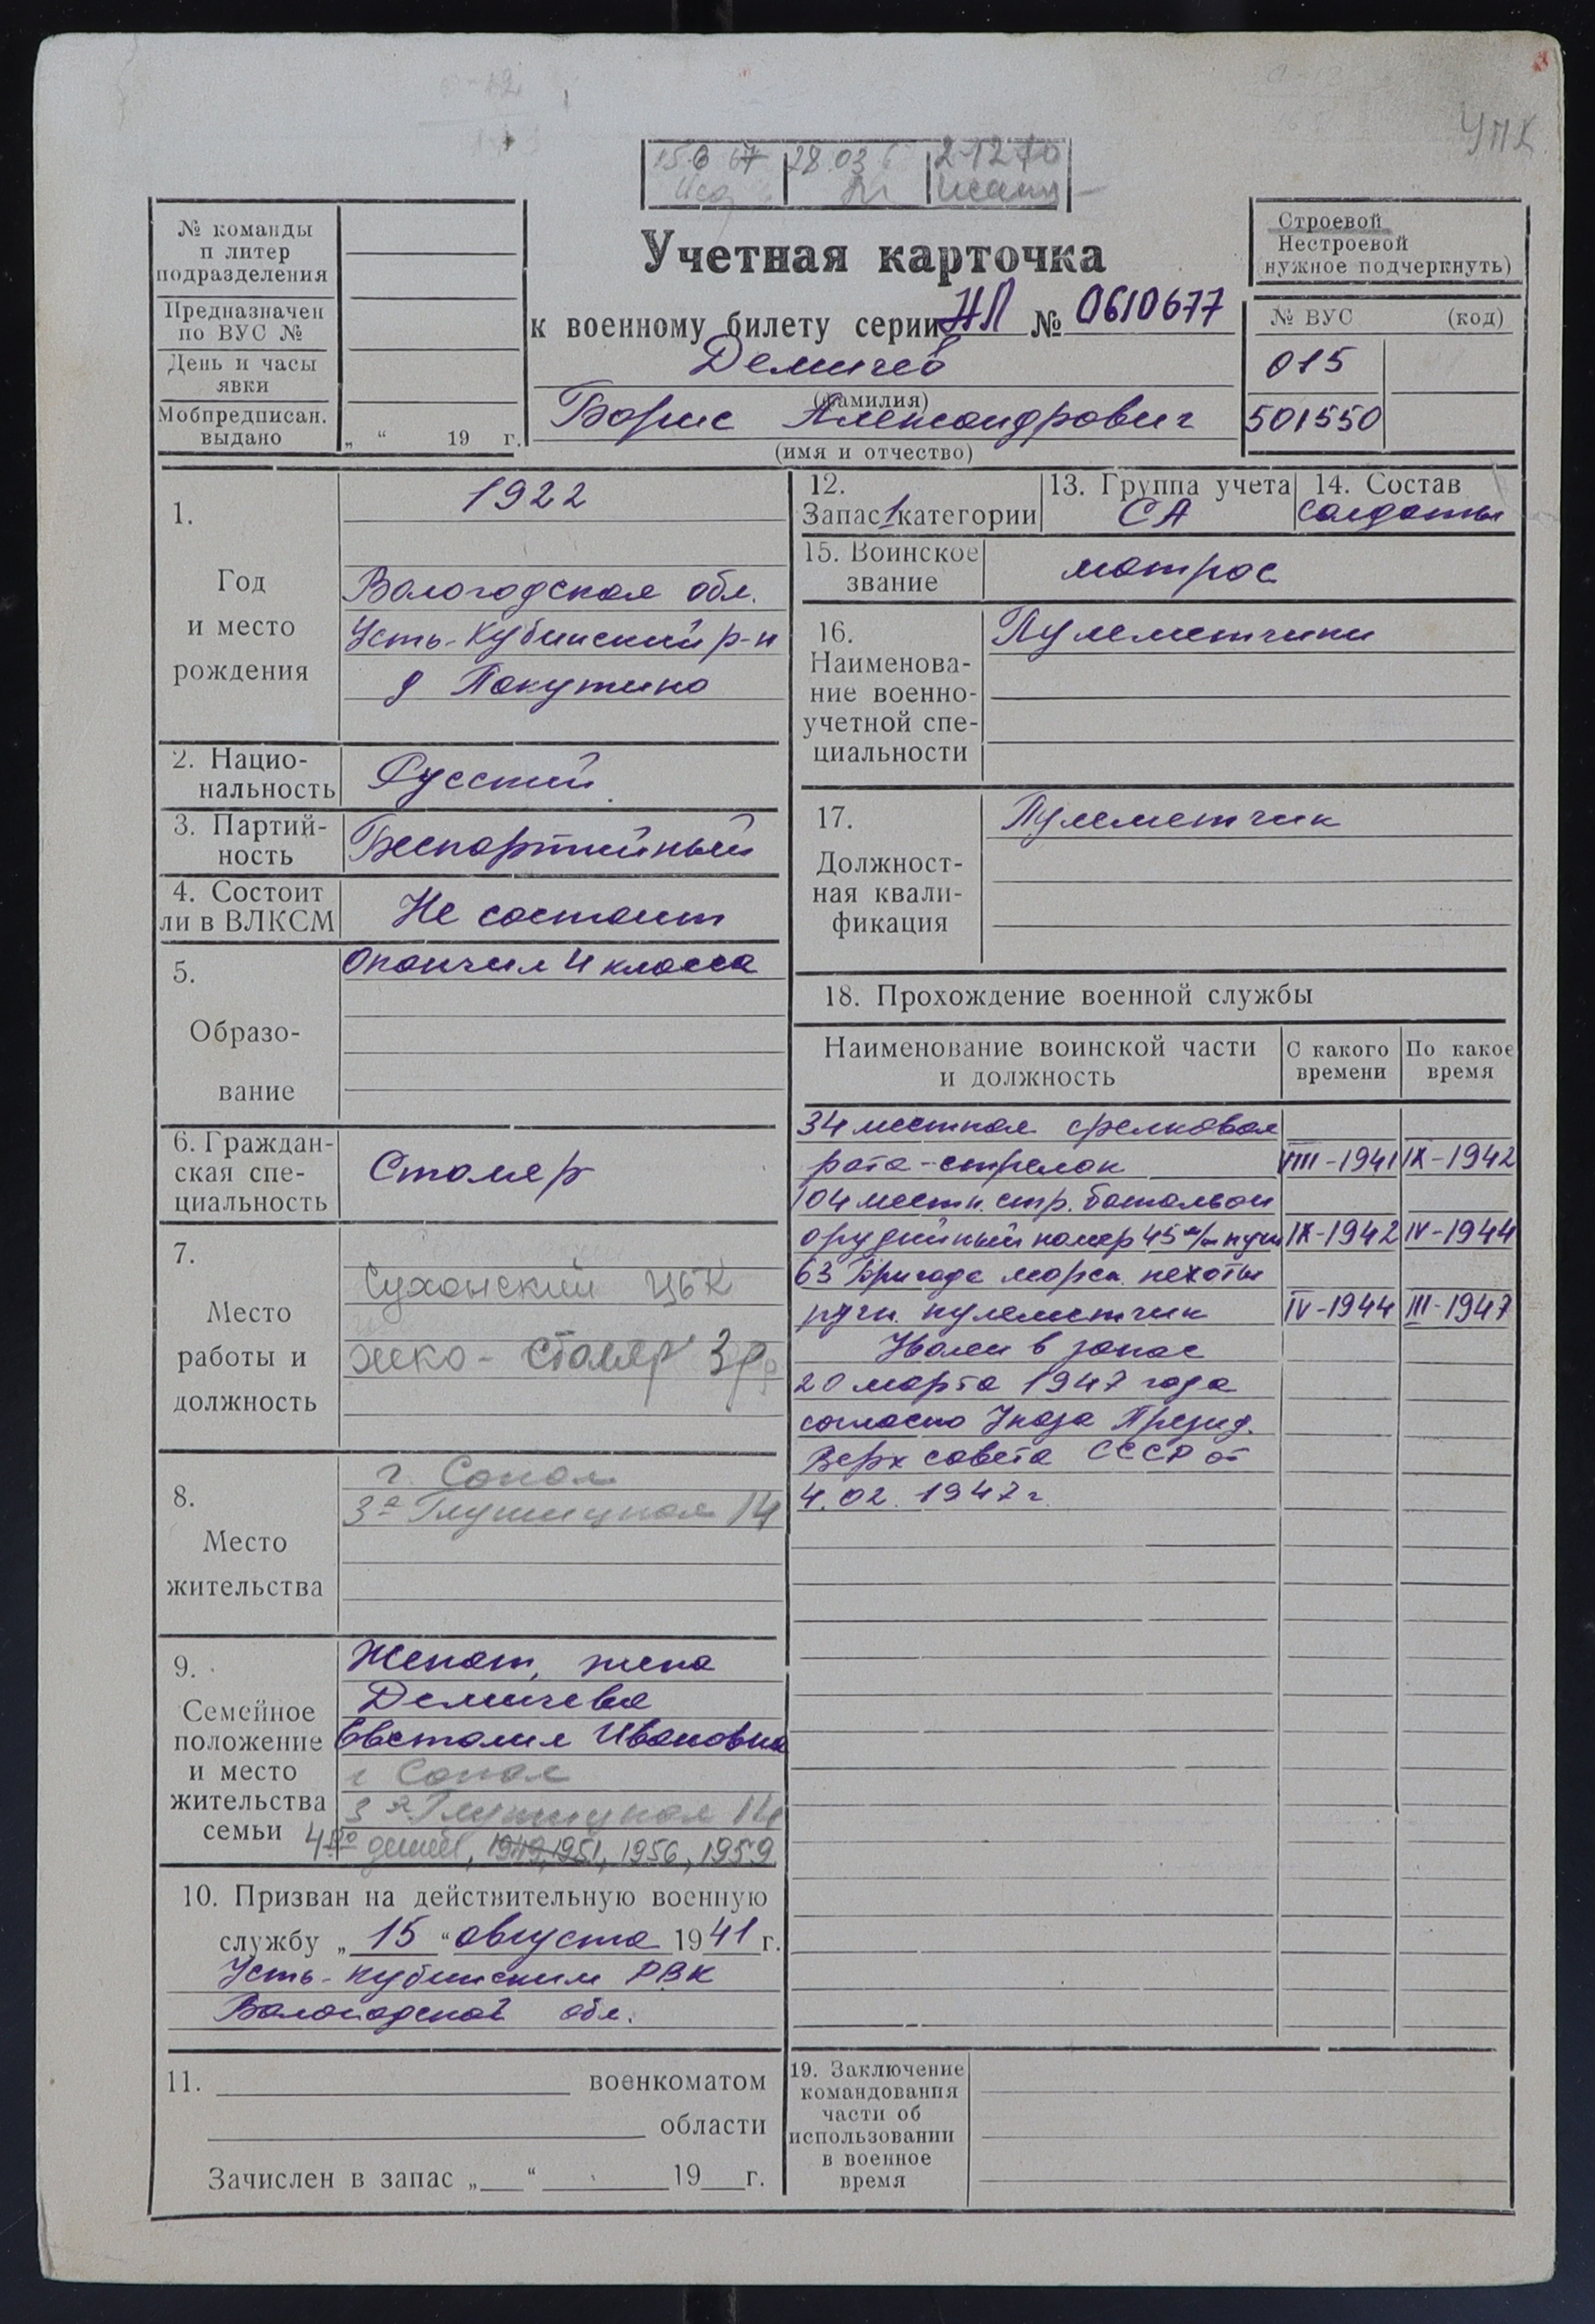 УПК
15 6 67 28.03 2-12 70
№ команды
п литер
подразделения
Предназначен
по ВУС №
День и часы
явки
Мобпредписан.
выдано
„ “ 19 г.
Учетная карточка
к военному билету серии НЛ № 0610677
Демичев
(фамилия)
Борис Александрович
(имя и отчество)
Строевой
Нестроевой
нужное подчеркнуть)
№ ВУС (код)
015
501550
1.
Год
и место
рождения
1922
Вологодская обл.
Усть-Кубинский р-н
д Покутино
2. Нацио-
нальность
Русский
3. Партий-
ность
Беспартийный
4. Состоит
ли в ВЛКСМ
Не состоит
5.
Образо-
вание
Окончил 4 класса
6. Граждан-
ская спе-
циальность
Столяр
7.
Место
работы и
должность
Сухонский ЦБК
жко - столяр 3р
8.
Место
жительства
г. Сокол
3я Глушицкая 14
9.
Семейное
положение
и место
жительства
семьи
Женат, жена
Демичева
Евсталия Ивановна
г Сокол
3я Глушицкая 14
4ро детей, 1949, 1951, 1956, 1959
10. Призван на действительную военную
службу „ 15 “ августа 1941 г.
Усть-Кубинским РВК
Вологодской обл.
11. военкоматом
области
Зачислен в запас „ “ 19 г.
12.
Запас 1 категории
13. Группа учета
СА
14. Состав
солдаты
15. Воинское
звание
матрос
16.
Наименова-
ние военно-
учетной спе-
циальности
Пулеметчики
17.
Должност-
ная квали-
фикация
Пулеметчик
18. Прохождение военной службы
Наименование воинской части
и должность
С какого
времени
По какое
время
34 местная срелковая
рота-стрелок VIII-1941 IX-1942
104 местн. стр. батальон
орудийный номер 45 м/м пушк IX-1942 IV-1944
63 бригада морск. пехоты
ручн. пулеметчик IV-1944 III-1947
Уволен в запас
20 марта 1947 года
согласно Указа Презид.
Верх совета СССР от
4.02.1947 г.
19. Заключение
командования
части об
использовании
в военное
время